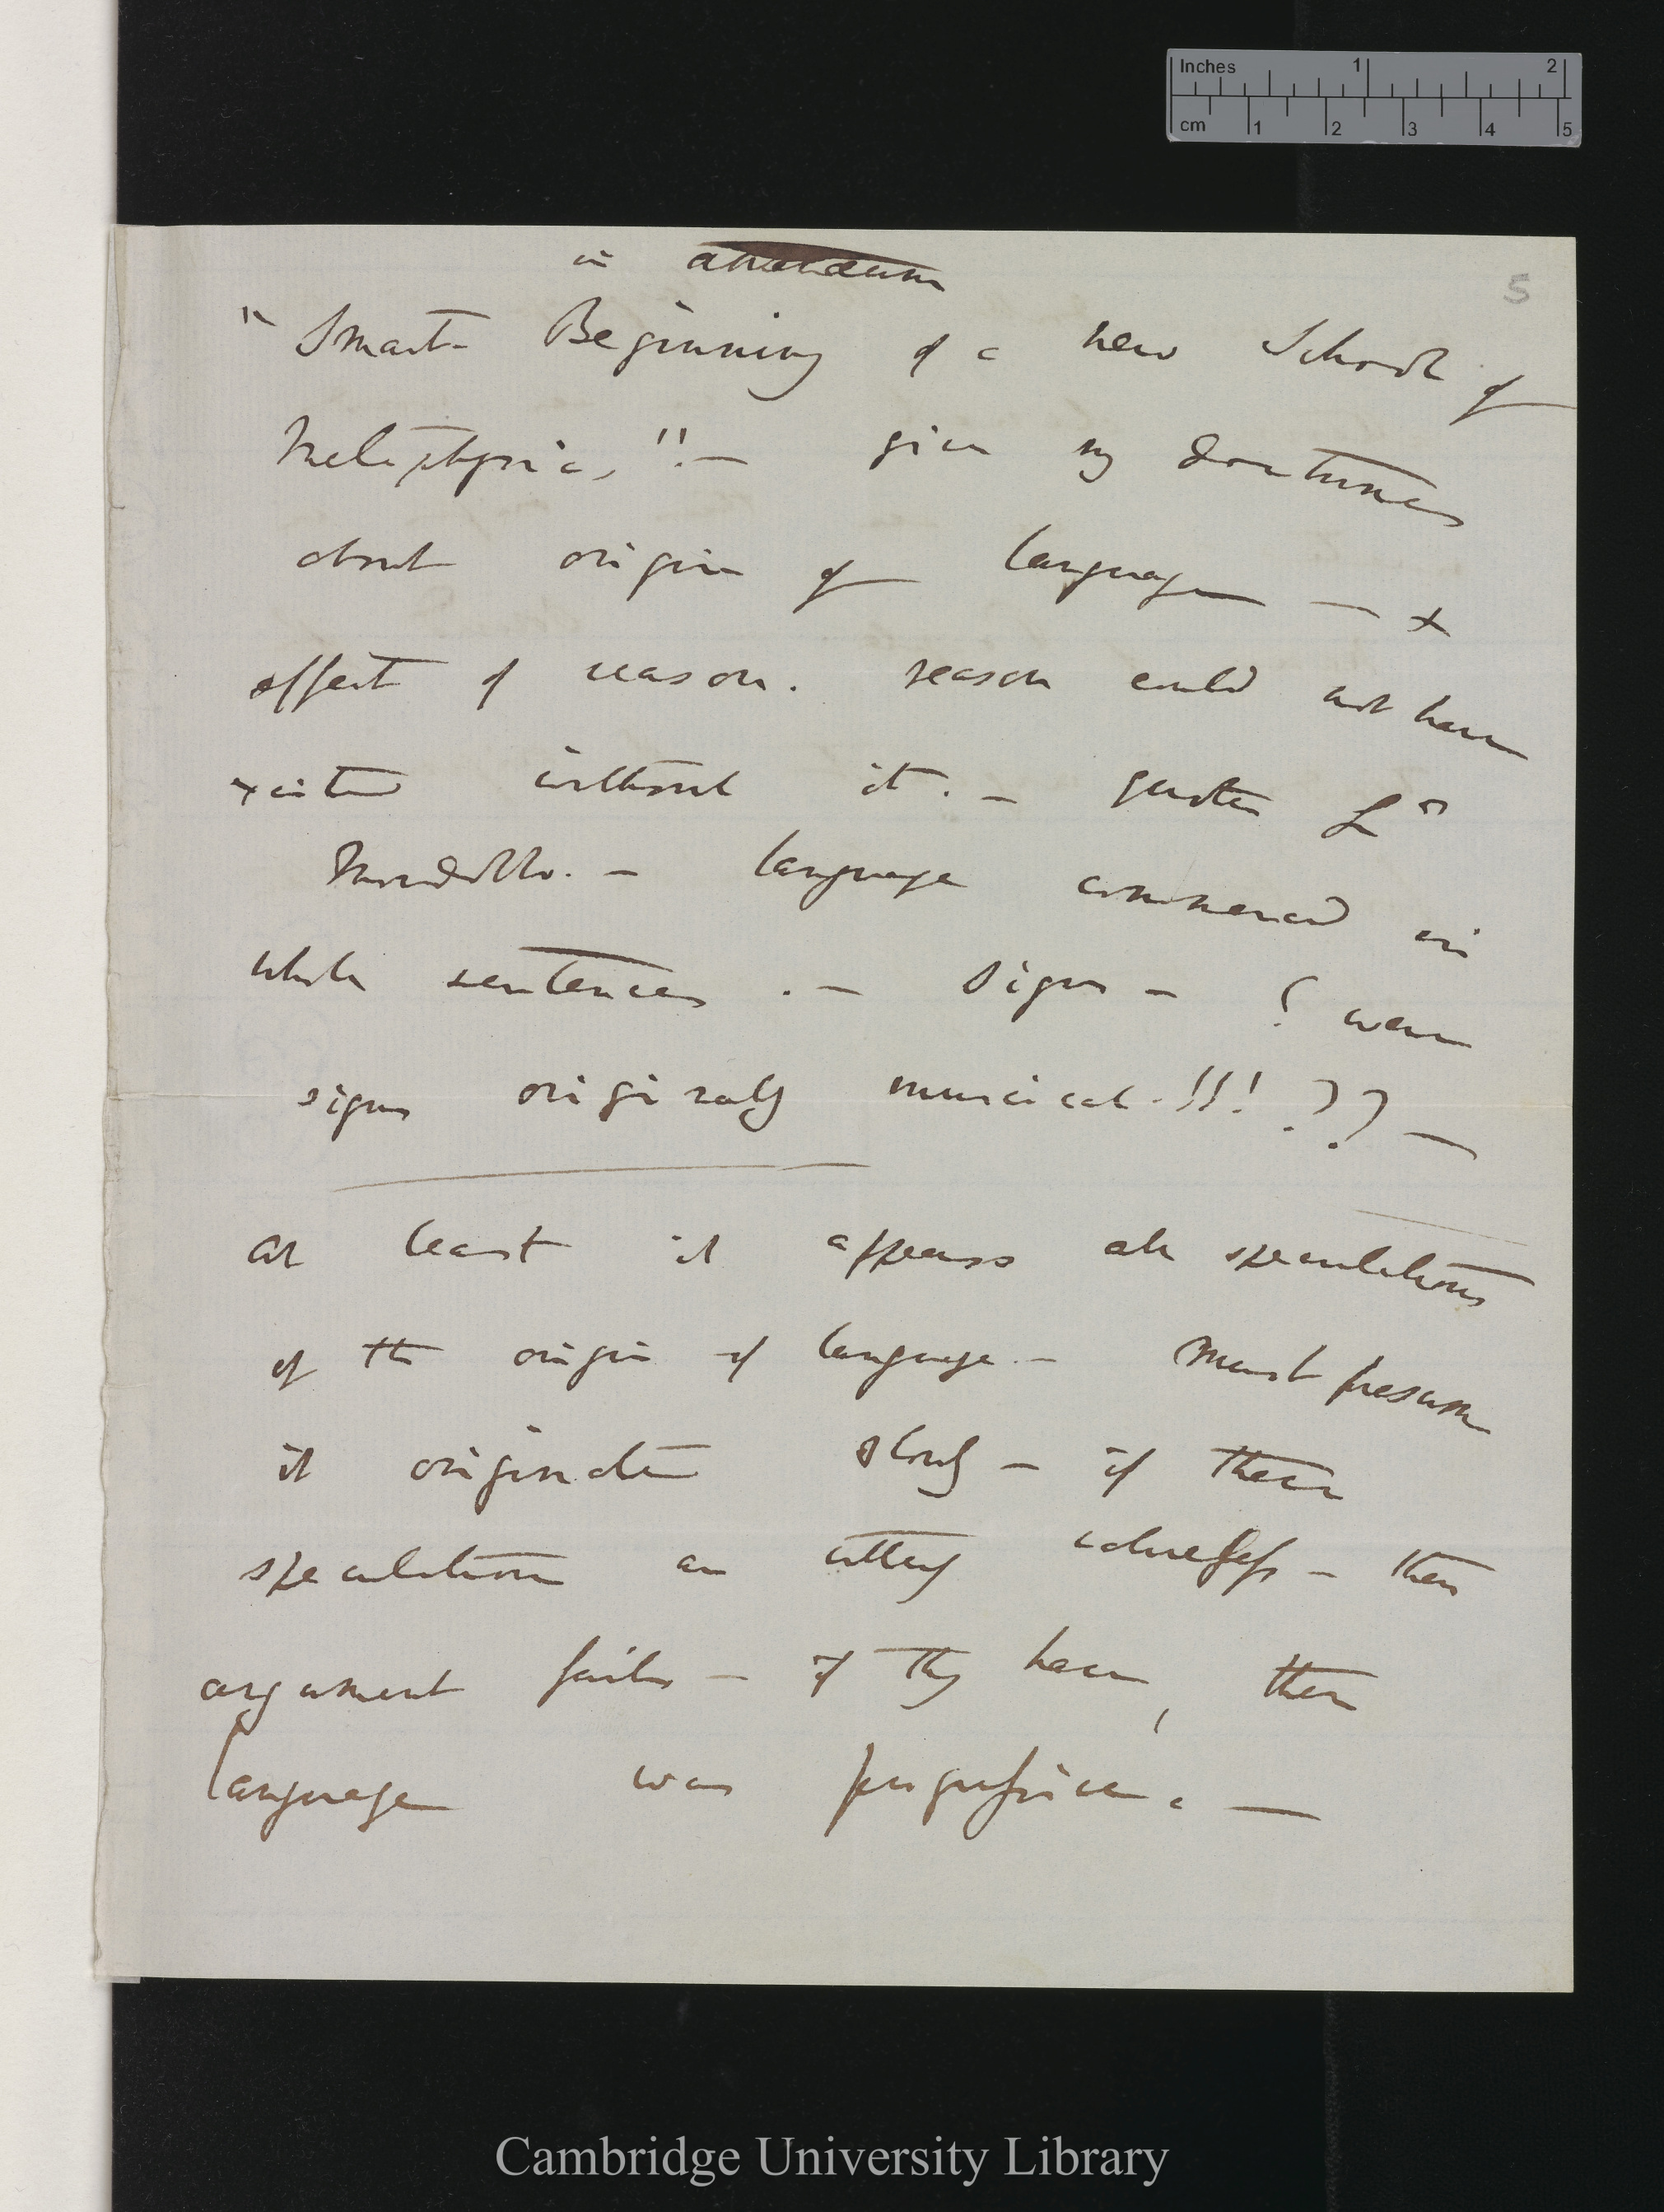 Inches 1 2
cm 1 2 3 4 5
5
in addendum
"Smart Beginning of a new School of
Metaphysics". — give my doctrines
about origin of language — &
effect of reason. reason could not have
existed without it. — quotes Ld
Monboddo. — language commenced in
whole sentences. — signs — ? were
signs originally musical. !!! ?? —
at least it appears all speculations
of the origin of language. — must presume
it originates slowly — if these
speculations are utterly valueless — then
argument fails — if they have, then
language was progressive. —
Cambridge University Library